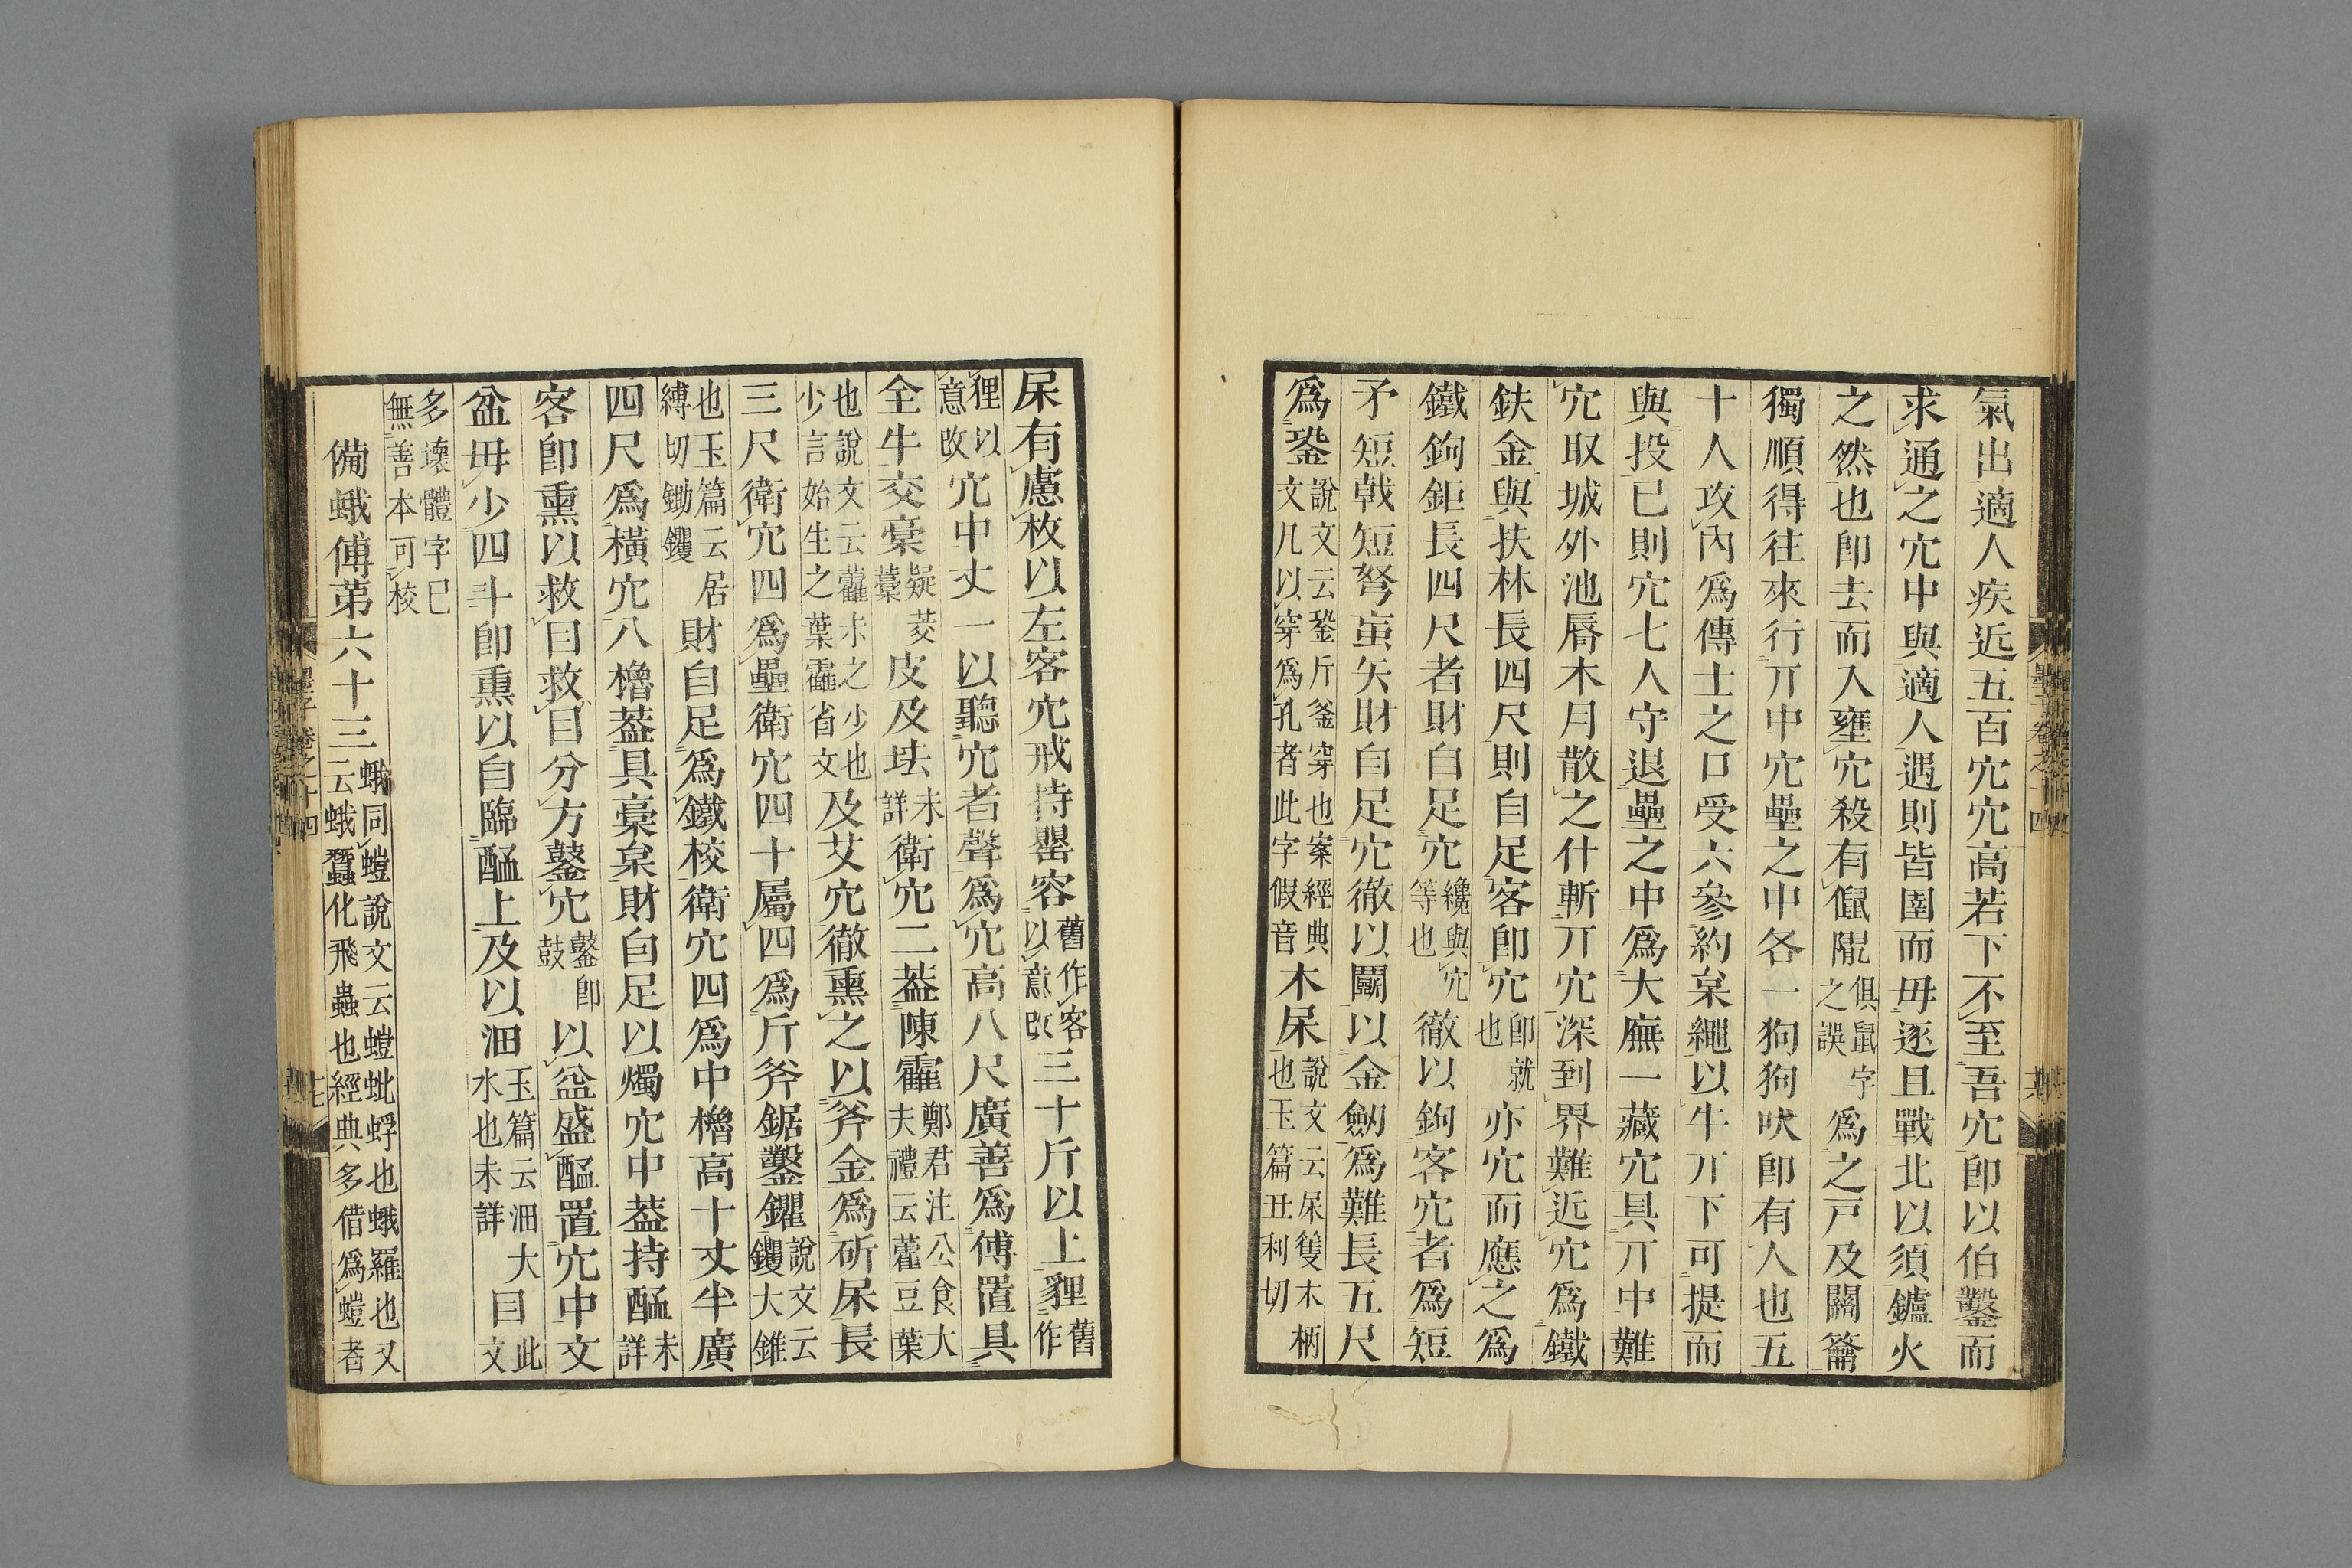 氣出適人疾近五百穴穴高若下不至吾穴卽以伯鑿而
求通之穴中與適人遇則皆圉而毋逐且戰北以須鑪火
之然也卽去而入壅穴殺有佪𨻶俱鼠字之誤爲之戸及關籥
獨順得往來行丌中穴壘之中各一狗狗吠卽有人也五
十人攻內爲傳士之口受六參約枲繩以牛丌下可提而
與投已則穴七人守退壘之中爲大廡一藏穴具丌中難
穴取城外池脣木月散之什斬丌穴深到界難近穴爲鐵
鈇金與扶林長四尺則自足客卽穴卽就也亦穴而應之爲
鐵鉤鉅長四尺者財自足穴纔與穴等也徹以鉤客穴者爲短
矛短戟短弩䖟矢財自足穴徹以鬬以金劒爲難長五尺
爲銎說文云銎斤釜穿也案經典文几以穿爲孔者此字假音木㞘說文云㞘篗木柄也玉篇丑利切
㞘有慮枚以左客穴戒持罌容舊作客以意改三十斤以上貍舊作
狸以意改穴中丈一以聽穴者聲爲穴高八尺廣善爲傅置具
全牛交槀疑茭藁皮及𡊟未詳衛穴二葢陳靃鄭君注公食大夫禮云藿豆葉
也說文云藿尗之少也少言始生之葉靃省文及艾穴徹熏之以斧金爲斫㞘長
三尺衛穴四爲壘衛穴四十屬四爲斤斧鋸鑿鑺說文云钁大錐
也玉篇云居縛切鋤钁財自足爲鐵校衛穴四爲中櫓高十丈半廣
四尺爲橫穴八櫓葢具稾枲財自足以燭穴中葢持醖未詳
客卽熏以救目救目分方䥣穴䥣卽鼓以盆盛醖置穴中文
盆毋少四斗卽熏以自臨醖上及以沺玉篇云沺大水也未詳目此文
多壞體字已無善本可校
備蛾傅第六十三蛾同螘說文云螘蚍蜉也蛾羅也又云蛾蠶化飛蟲也經典多借爲螘者